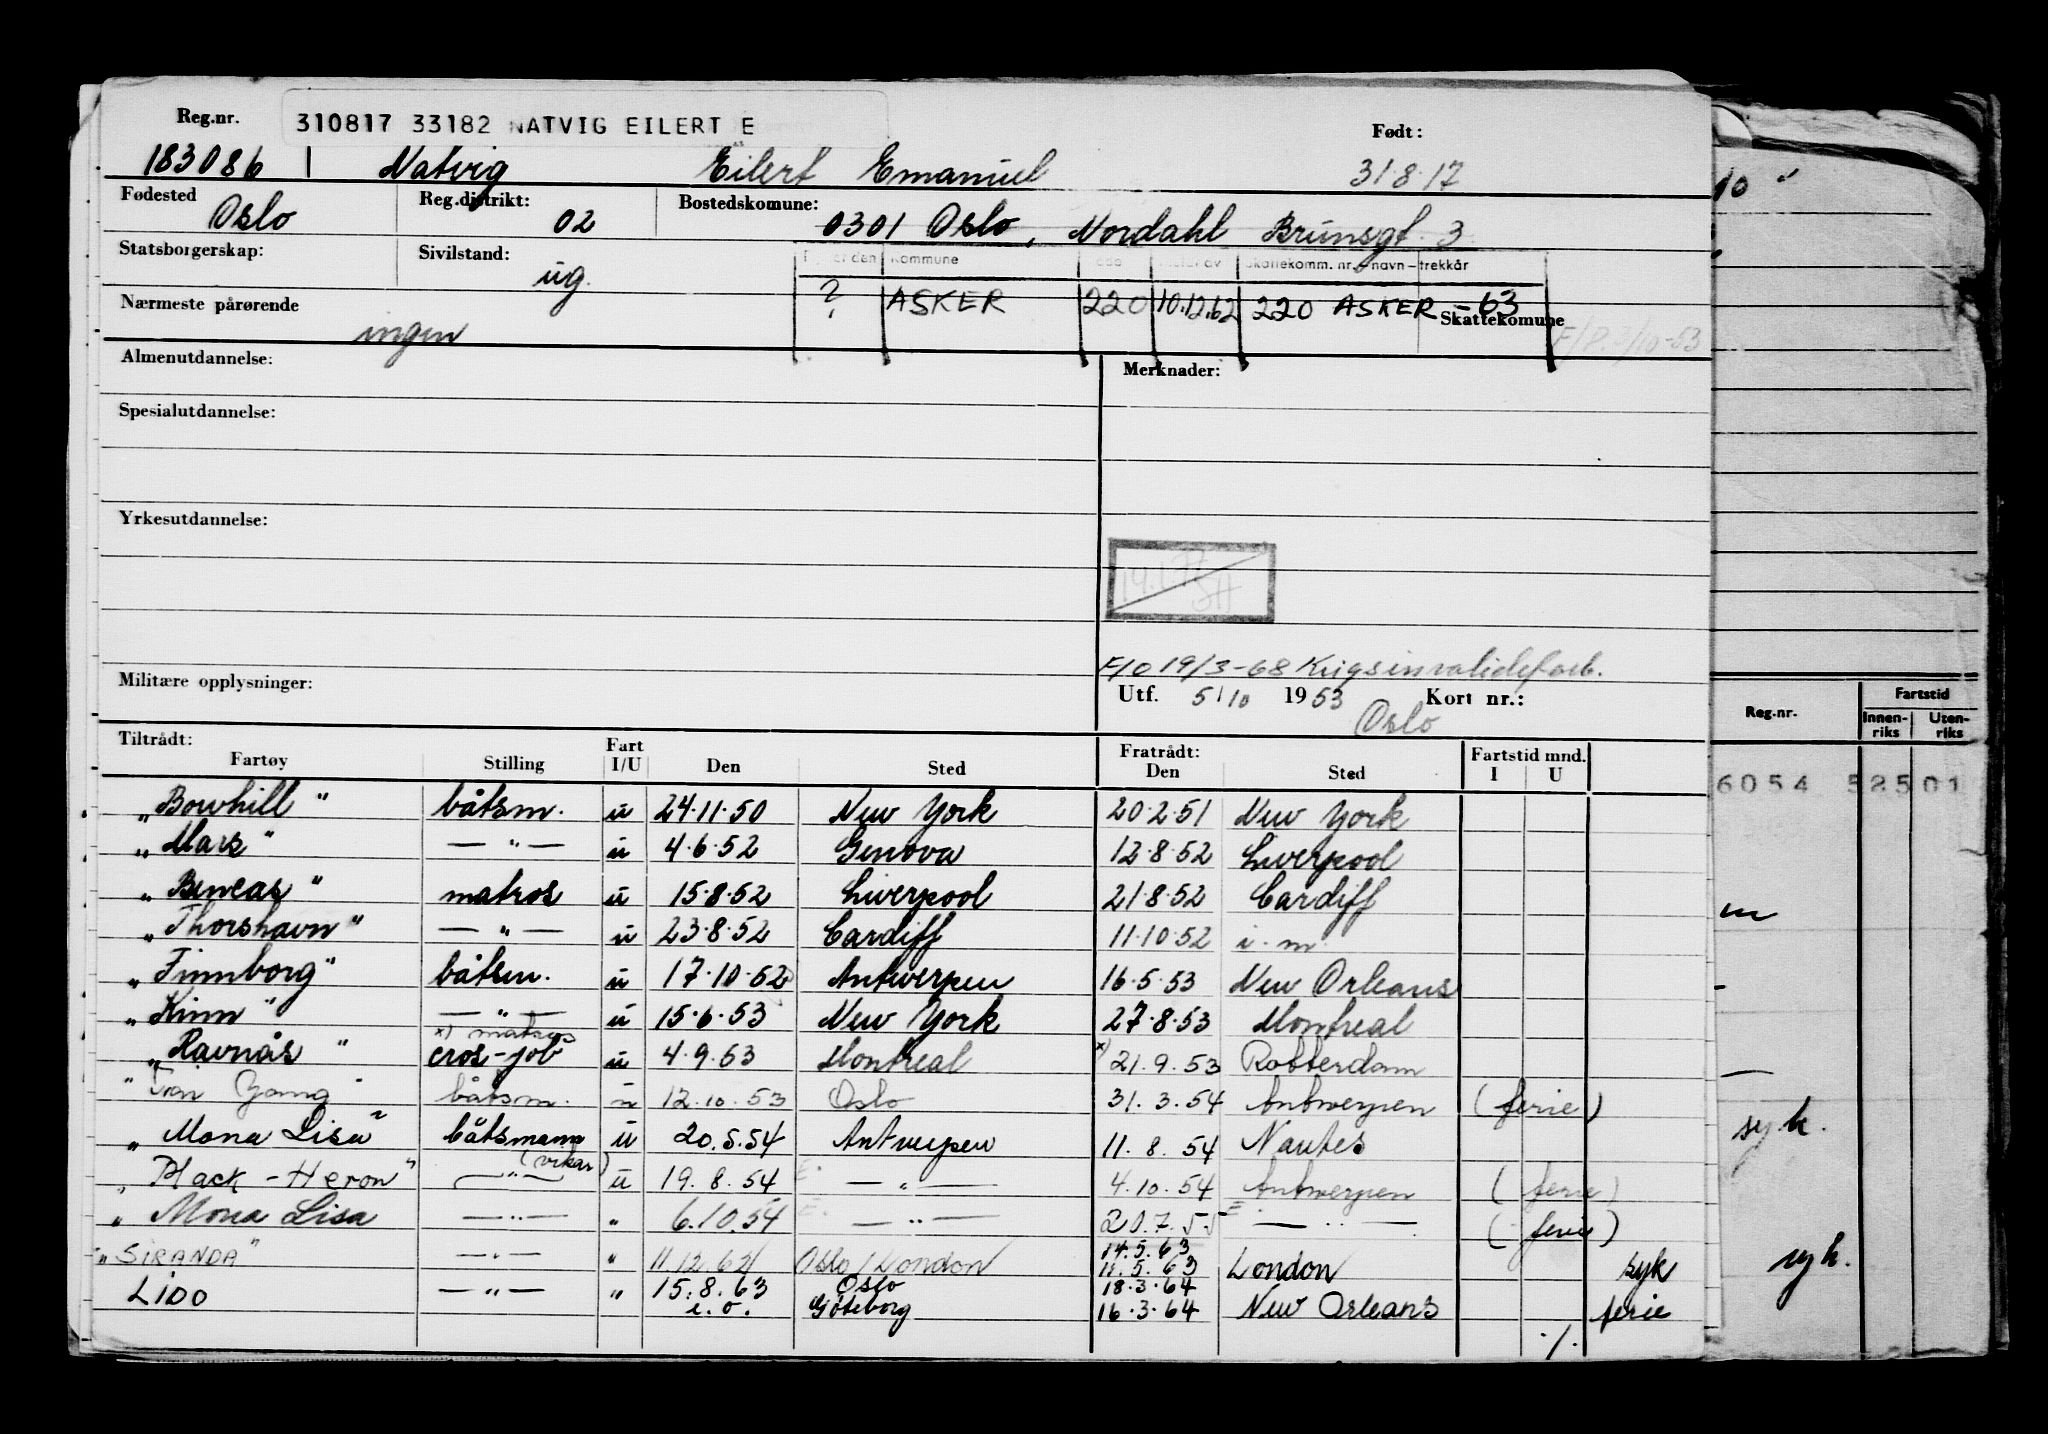 Reg.nr. 310817 33182 NATVIG EILERT E Født:
183086 1 Natvig Eilert Emanuel 31.8.17
Fødested Oslo Reg.distrikt: 02 Bostedskomune: 0301 Oslo, Nordahl Brunsgt. 3
Statsborgerskap: Sivilstand: ug. Kommune Skattekomm. nr. – navn – trekkår
Nærmeste pårørende ingen ? ASKER 220 10.12.62 220 ASKER - 63 Skattekomune
F/P. /10-53
Almenutdannelse: Merknader:
Spesialutdannelse:
Yrkesutdannelse:
F/O 19/3-68 Krigsinvalideforb.
Militære opplysninger: Utf. 5/10 1953 Kort nr.:
Oslo
Reg.nr. Fartstid
Innen-riks Uten-riks
Tiltrådt: Fratrådt:
Fartøy Stilling Fart I/U Den Sted Den Sted Fartstid mnd. I U
6054 52501
"Bowhill" båtsm. u 24.11.50 New York 20.2.51 New York
"Mark" — " — u 4.6.52 Genova 12.8.52 Liverpool
"Beneas" matros u 15.8.52 Liverpool 21.8.52 Cardiff
"Thorshavn" — " — u 23.8.52 Cardiff 11.10.52 i.m.
"Finnborg" båtsm. u 17.10.52 Antwerpen 16.5.53 New Orleans
"Kinn" — " — u 15.6.53 New York 27.8.53 Montreal
x) matros
"Ravnås" cros-job u 4.9.53 Montreal x) 21.9.53 Rotterdam
" Yang" båtsm. u 12.10.53 Oslo 31.3.54 Antwerpen (ferie)
"Mona Lisa" båtsmann u 20.5.54 Antwerpen 11.8.54 Nantes
syk.
"Black-Heron" — " — (vikar) u 19.8.54 — " — 4.10.54 Antwerpen (ferie)
"Mona Lisa — " — " 6.10.54 — " — 20.7.55 — " — (ferie)
"SIRANDA" — " — " 11.12.62 Oslo/London 14.5.63
11.5.63 London syk
syk.
LIDO — " — " 15.8.63 Oslo 18.3.64
i.o. Göteborg 16.3.64 New Orleans ferie
./.